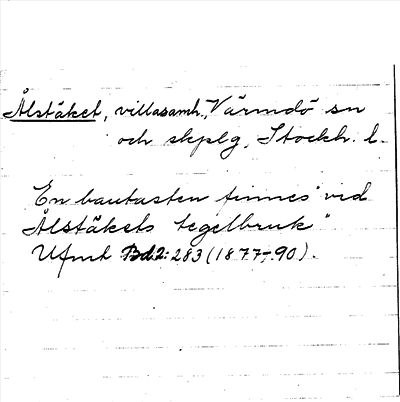 Ålstäket, villasamh., Värmdö sn
och skplg, Stockh. l.
En bautasten finnes "vid
Ålstäkets tegelbruk"
Ufmt Bd 2: 283 (1877-90).